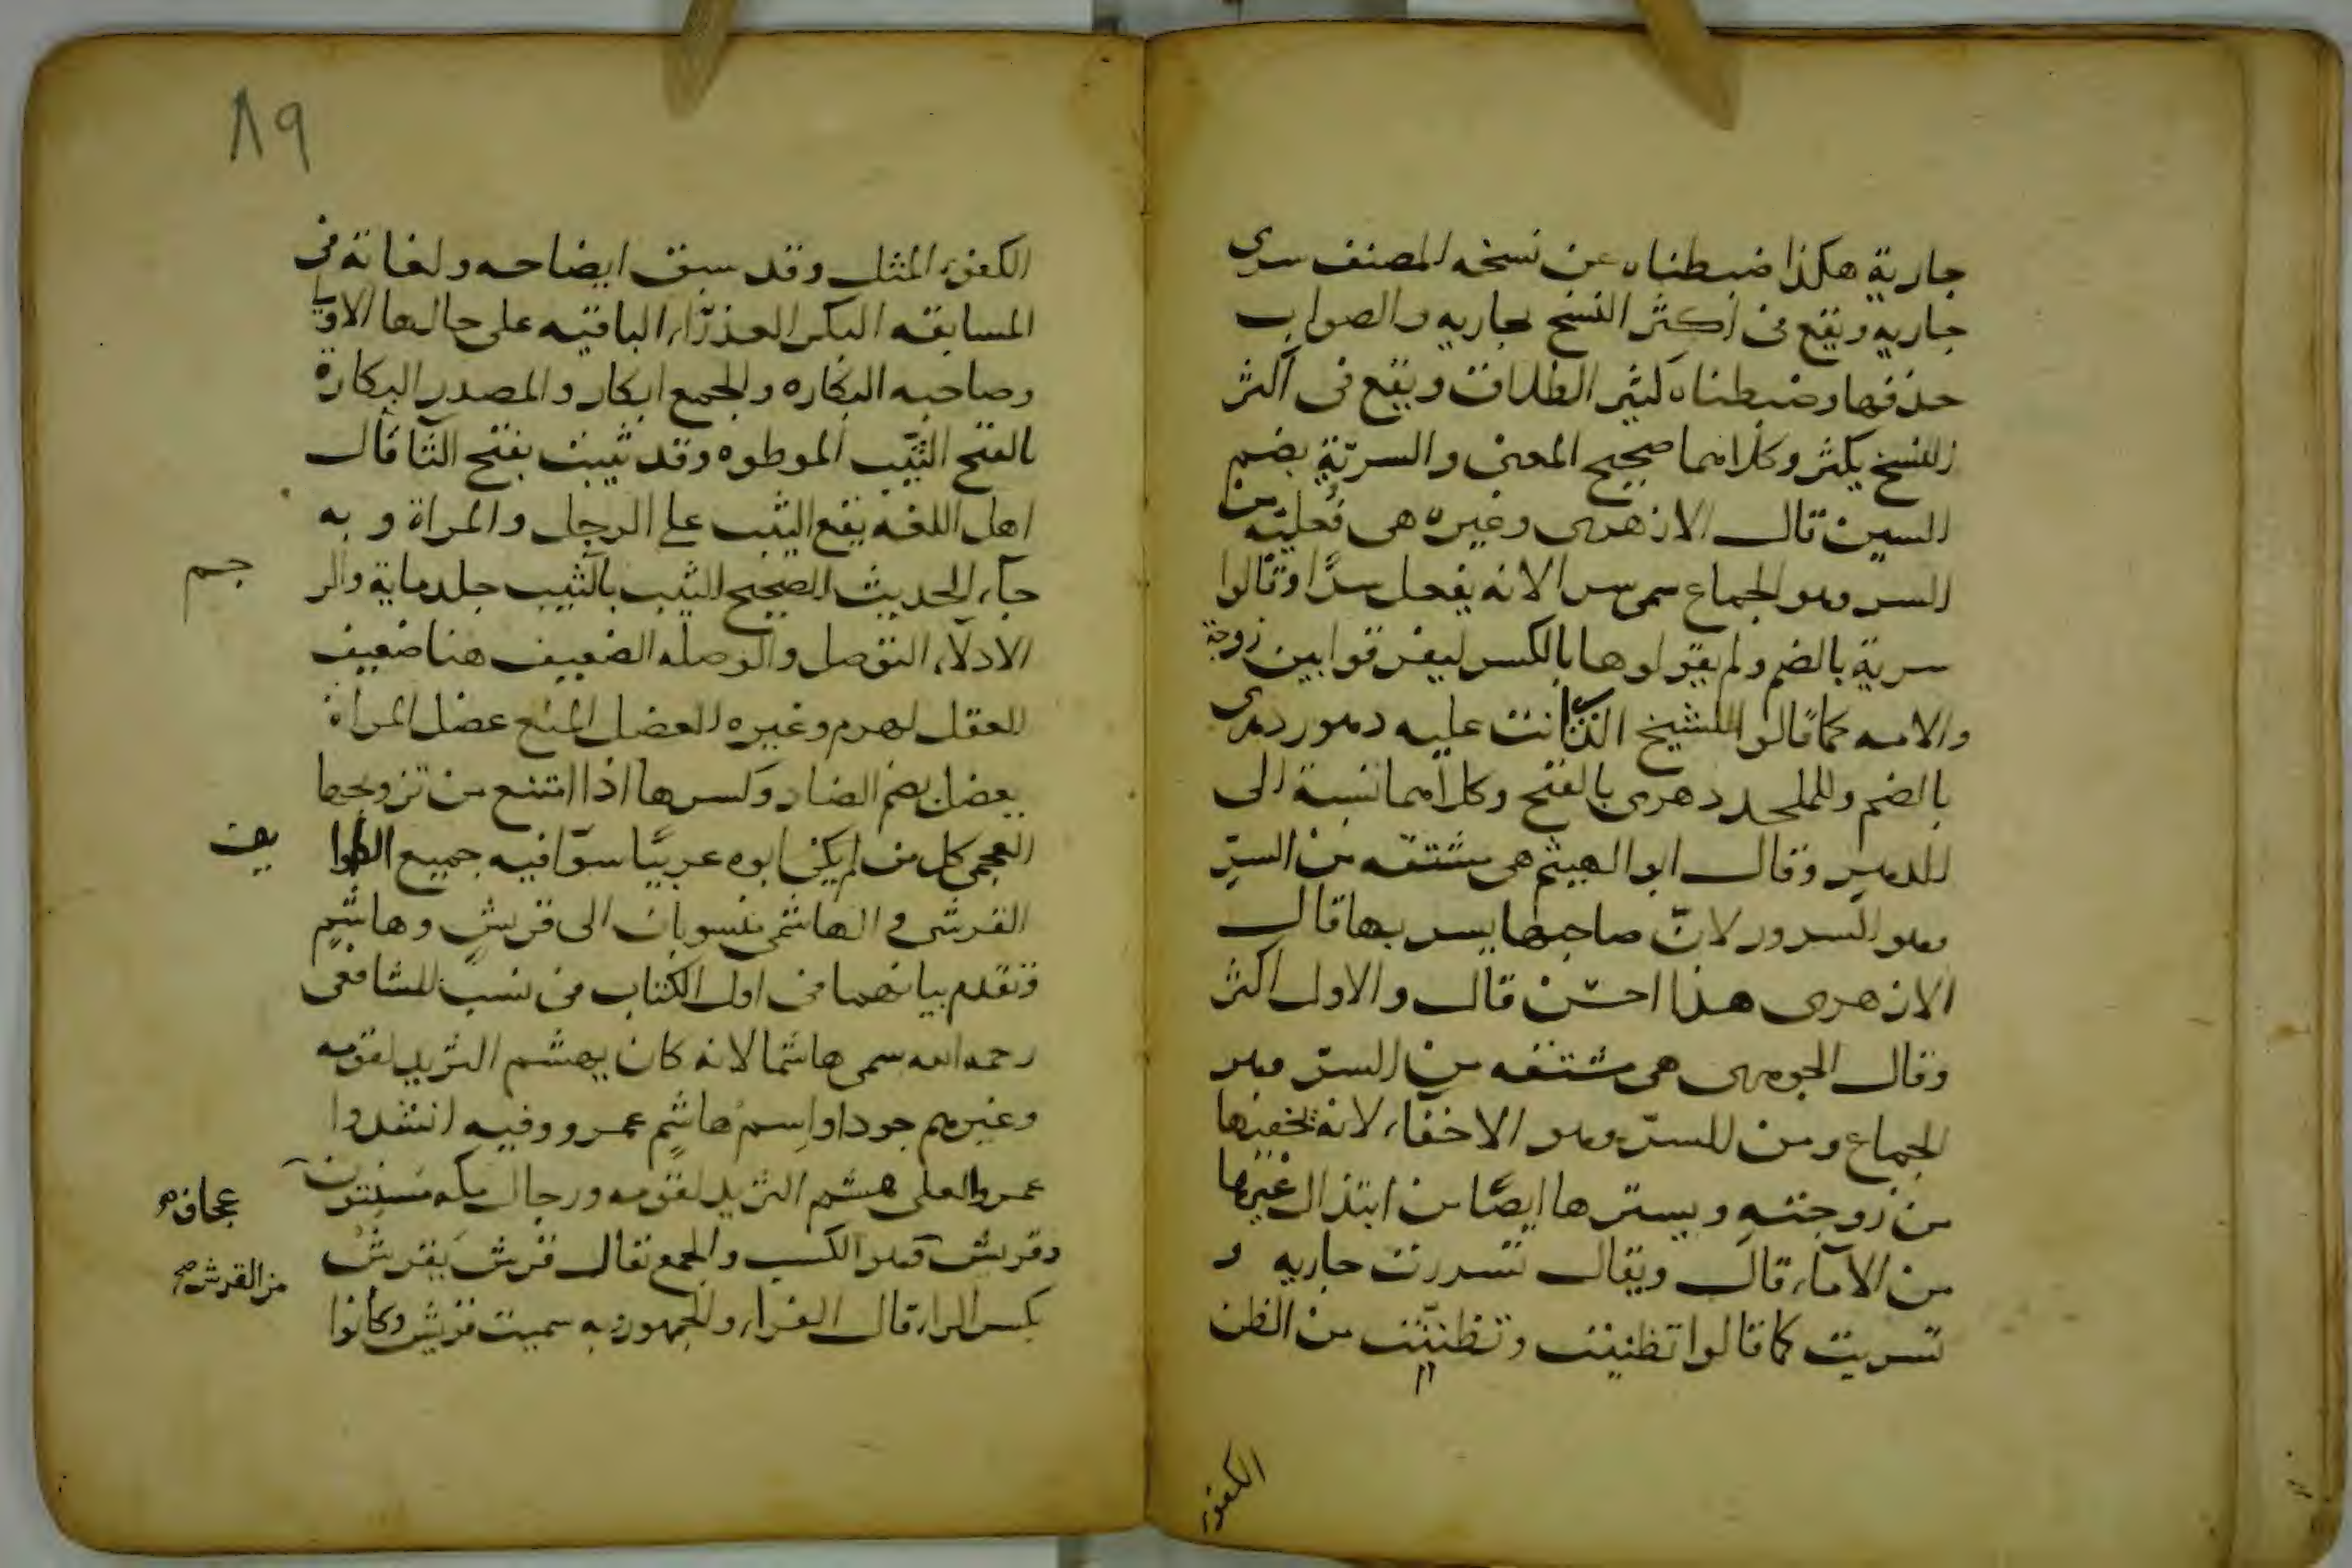 جارية هكذا ضبطناه عن نسخه المصنف سرى
جاريه ويقع فى أكثر النسخ بجاريه والصواب
حذفها وضبطناه كثير الطلاق ويقع فى أكثر
النسخ يكثر وكلاهما صحيح المعنى والسريّة بضم
السين قال الازهرى وغيره هى فُعليّة من
السر وهو الجماع سمى سرا لانه يفعل سرًا وقالوا
سرية بالضم ولم يقولوها بالكسر ليفرقوا بين زوجة
والامه كما قالوا للشيخ الذى انت عليه دهور دهرى
بالضم وللملحد دهرى بالفتح وكلاهما نسبة الى
الدهر وقال ابو الهيثم هى مشتقه من السرّ
وهو السرور لانّ صاحبها يسر بها قال
الازهرى هذا احسن قال والاول اكثر
وقال الجوهرى هى مشتقه من السرّ وهو
الجماع ومن السرّ وهو الاخفاء لانه يخفيها
من زوجته ويسترها ايضًا من ابتذال غيرها
من الامآء قال ويقال تسررت جاريه و
تسريت كما قالوا تظنيت وتظننت من الظن
الكفوء
٨٩
الكفوء المثل وقد سبق ايضاحه ولغاته فى
المسابقه البكر العذرآء الباقيه على حالها الاولى
وصاحبه البكاره والجمع ابكار والمصدر البكارة
بالفتح الثيّب الموطوه وقد ثيبت بفتح الثا قال
اهل اللغه يقع الثيب على الرجل والمراة و به
جآء الحديث الصحيح الثيب بالثيب جلد ماية والر
جم
الادلآء التوصل والوصله الضعيف هنا ضعيف
العقل لهرم وغيره العضل المنع عضل المراة
يعضل بضم الضاد وكسرها اذا امتنع من تزويجها
العجمى كل من لم يكن ابوه عربيًا سوآ فيه جميع الطوا
يف
القرشى والهاشمى منسوبان الى قريش وهاشم
وتقدم بيانهما فى اول الكتاب فى نسب الشافعى
رحمه الله سمى هاشما لانه كان يهشم الثريد لقومه
وغيرهم جودا واسم هاشم عمرو وفيه انشدوا
عمرو العلى هشم الثريد لقومه ورجال مكه مسنتون
عجاف صح
وقريش هو الكسب والجمع يقال قرش يقرش
من القرش صح
بكسر الراء قال الفراء والجمهور به سميت قريش وكانوا